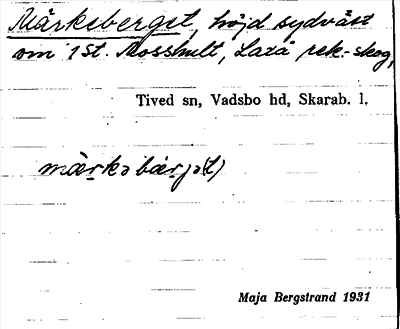 Märksberget, höjd sydväst
om 1 St. Mosshult, Laxå rek-skog,
Tived sn, Vadsbo hd, Skarab. l.
märkʂbärjə(t)
Maja Bergstrand 1931